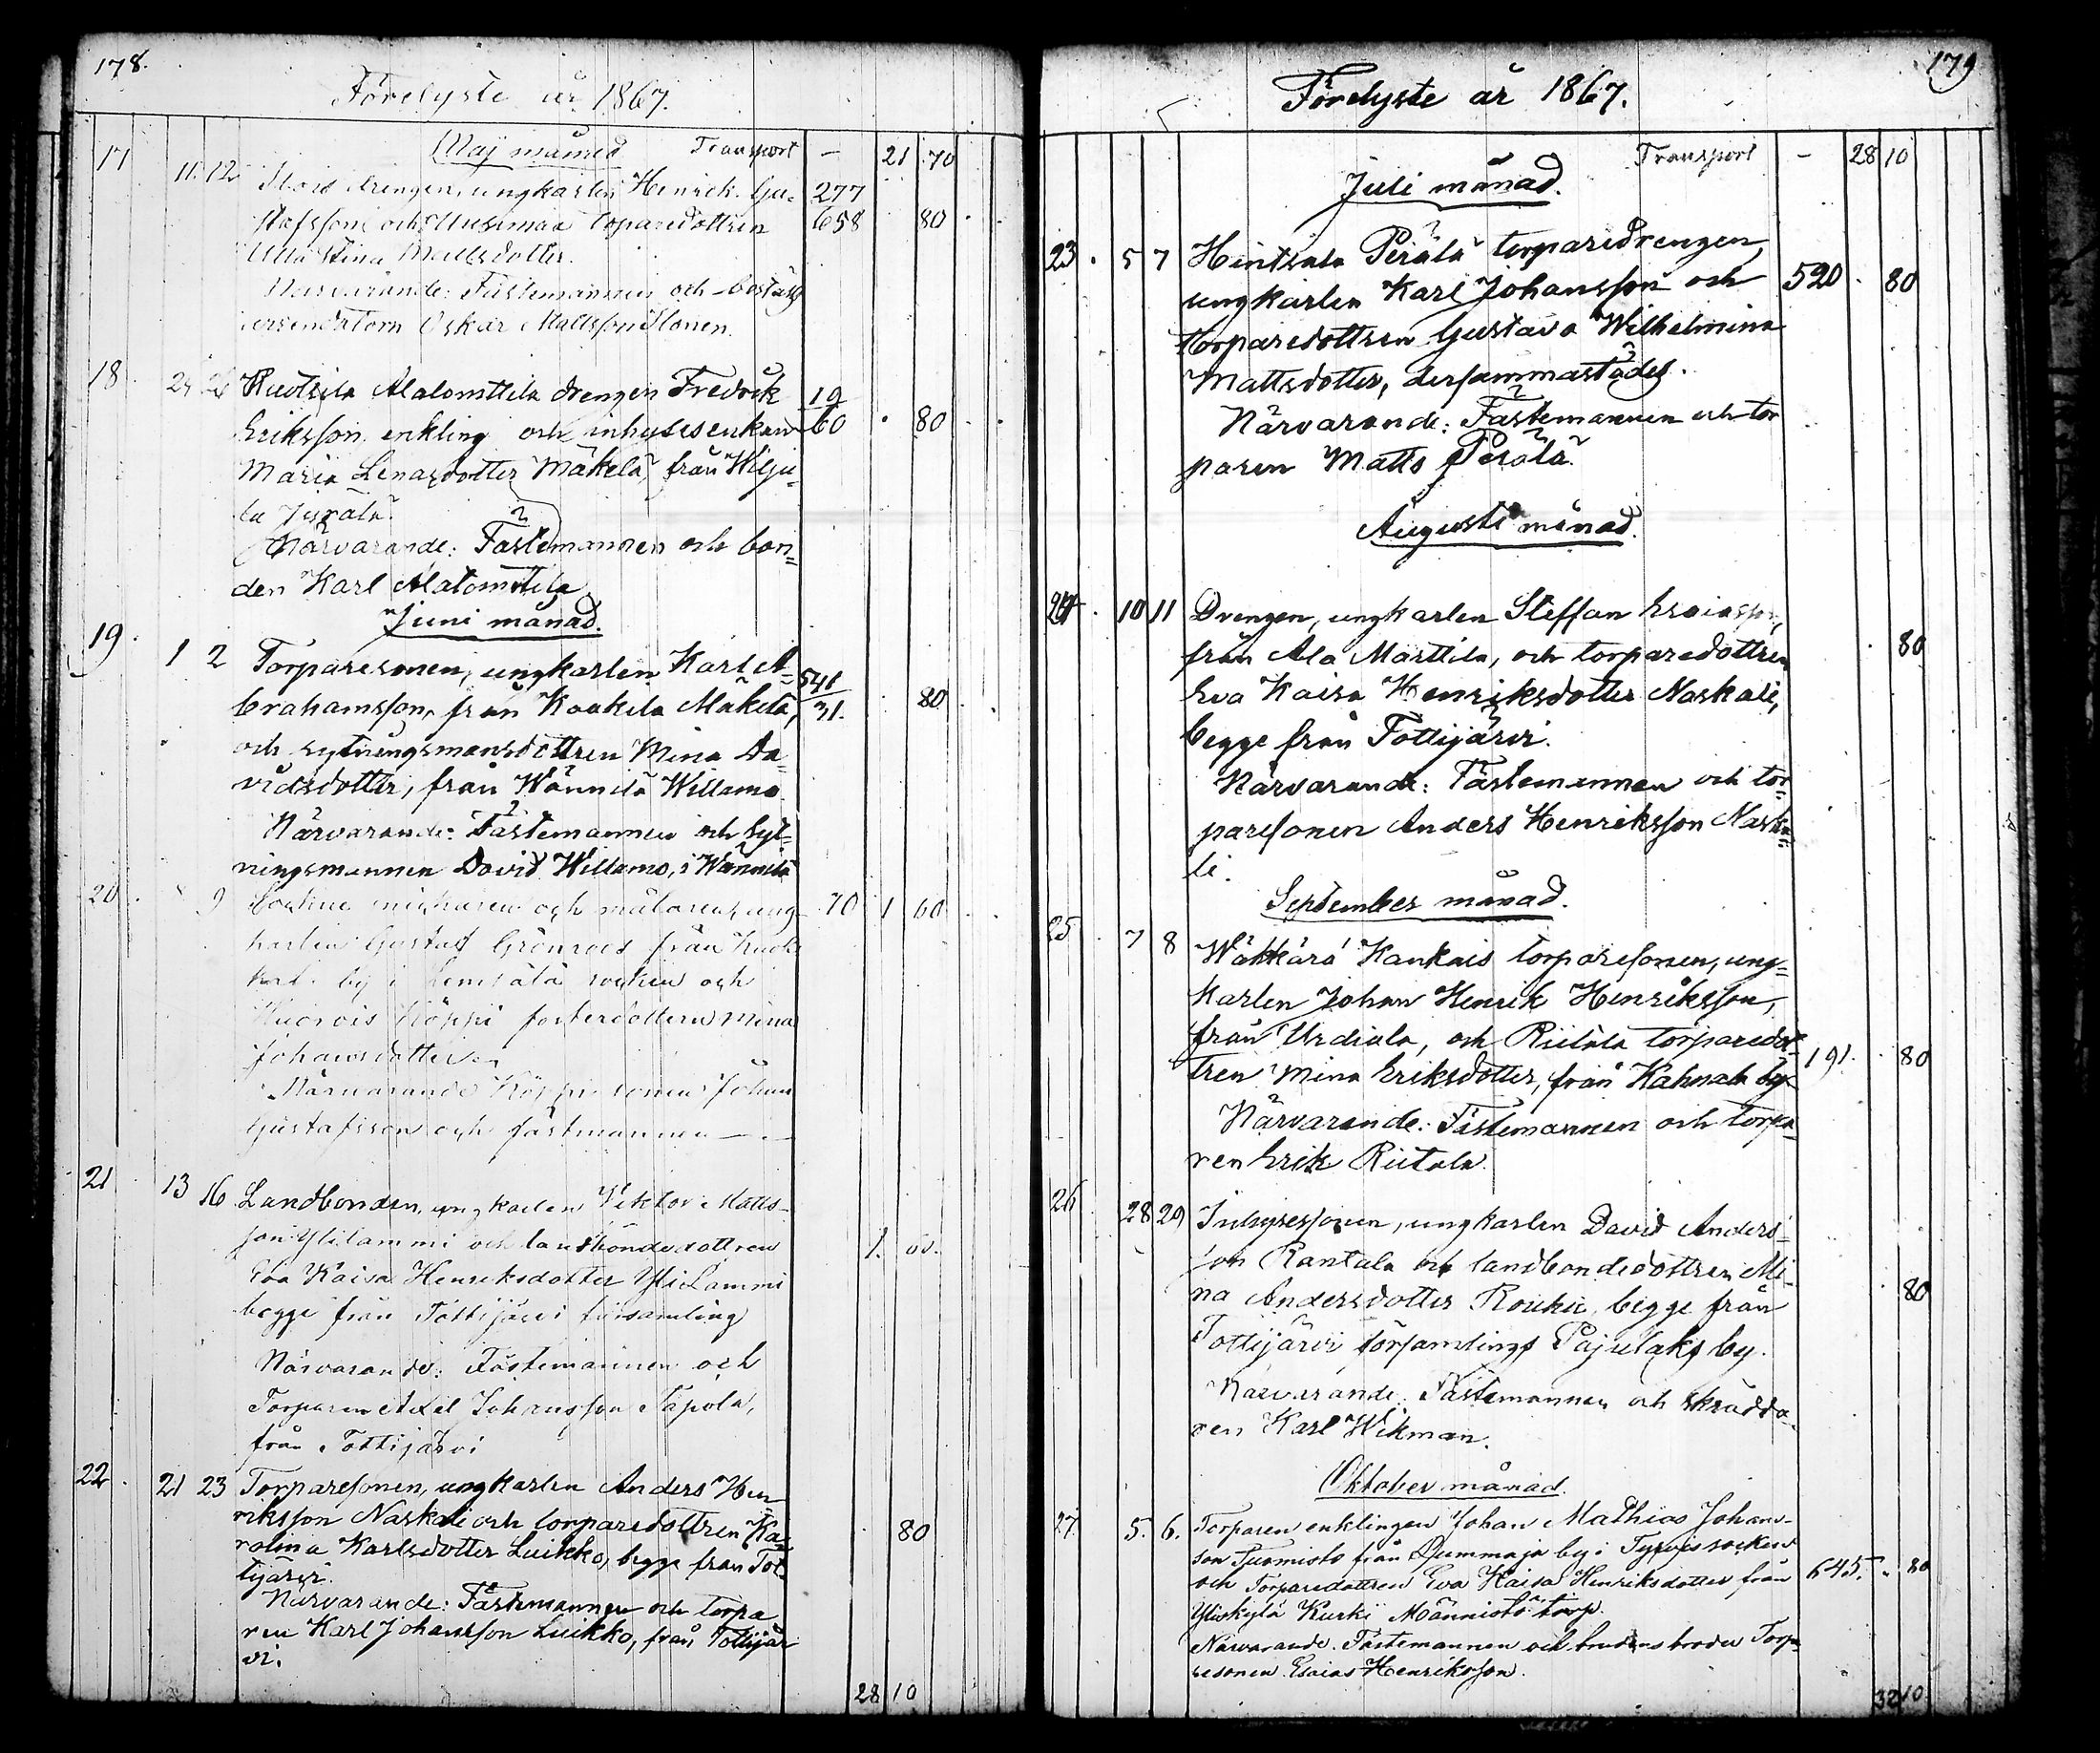 178.
Förelyste år 1867.
Maj månad Transport – 21 70
17 11. 12 drengen, ungkarlen Henrik Gu- 277
stafsson och Uusimaa torparedottren 658 80
Ulla Stina Mattsdotter.
Närvarande: Fästemannen och
Oskar Mattsson Ilonen.
18. 24 Alatomttila drengen Fredrik 19
Eriksson, enkling och inhysesenkan 60 80
Maria Lenasdotter Mäkelä, från Wilju-
la
Närvarande: Fästemannen och bon=
den Karl Alatomttila
Juni månad.
19. 1 2 Torparesonen, ungkarlen Karl A= 541
brahamsson, från Kaakila Mäkelä, 31. 80
och sytningsmansdottren Mina Da=
vidsdotter, från Wännilä Willamo.
Närvarande: Fästemannen och Syt=
ningsmannen David Willamo, i Wännilä
20. 9 och målaren, ung- 70 1 60
karlen Gustaf Grönroos från
by i socken och
Köppi fosterdottren Mina
Johansdotter.
Närvarande Köppi sonen Johan
Gustafsson och fästmannen
21 13 16 Landbonden, ungkarlen Viktor Matts-
son Ylilammi och landbondedottren 1.
Eva Kaisa Henriksdotter YliLammi
begge från Tottijärvi församling
Närvarande: Fästemannen och
Torparen Axel Johansson Tapola,
från Tottijärvi
22. 21 23 Torparesonen, ungkarlen Anders Hen
riksson Naskali och torparedottren Ka= 80
rolina Karlsdotter Luikko, begge från Tot-
tijärvi.
Närvarande: Fästemannen och torpa
ren Karl Johansson Luikko, från Tottijär
vi.
28 10
179
Förelyste år 1867.
Transport – 28 10
Juli månad.
23. 5 7 Hintsala Perälä torparedrengen,
ungkarlen Karl Johansson och 520 80
torparedottren Gustava Wilhelmina
Mattsdotter, dersammastädes.
Närvarande: Fästemannen och tor
paren Matts Perälä.
Augusti månad.
24. 10 11 Drengen, ungkarlen Steffan Esaiasson,
från Ala Marttila, och torparedottren 80
Eva Kaisa Henriksdotter Naskali,
begge från Tottijärvi.
Närvarande: Fästemannen och tor=
paresonen Anders Henriksson Naska=
li.
September månad.
25 7 8 Wähkärä Kankais torparesonen, ung=
karlen Johan Henrik Henriksson,
från Urdiala, och Riitala torparedot=
tren Mina Eriksdotter, från Kahnala by 191. 80
Närvarande: Fästemannen och torpa=
ren Erik Riitala.
26 28 29 Inhysessonen, ungkarlen David Anders=
son Rantala och landbondedottren Mi- 80
na Andersdotter Rouku, begge från
Tottijärvi församlings Pajulaks by.
Närvarande: Fästemannen och skrädda-
ren Karl Wikman.
Oktober månad.
27. 5. 6. Torparen enklingen Johan Mathias Johans-
son Tuomisto från by i Tyrvis socken
och Torparedottren Eva Kaisa Henriksdotter från 645. 80
Yliskylä Kurki Männistö torp.
Närvarande. Fästemannen och brudens broder Torpa-
resonen Esaias Henriksson.
32 10